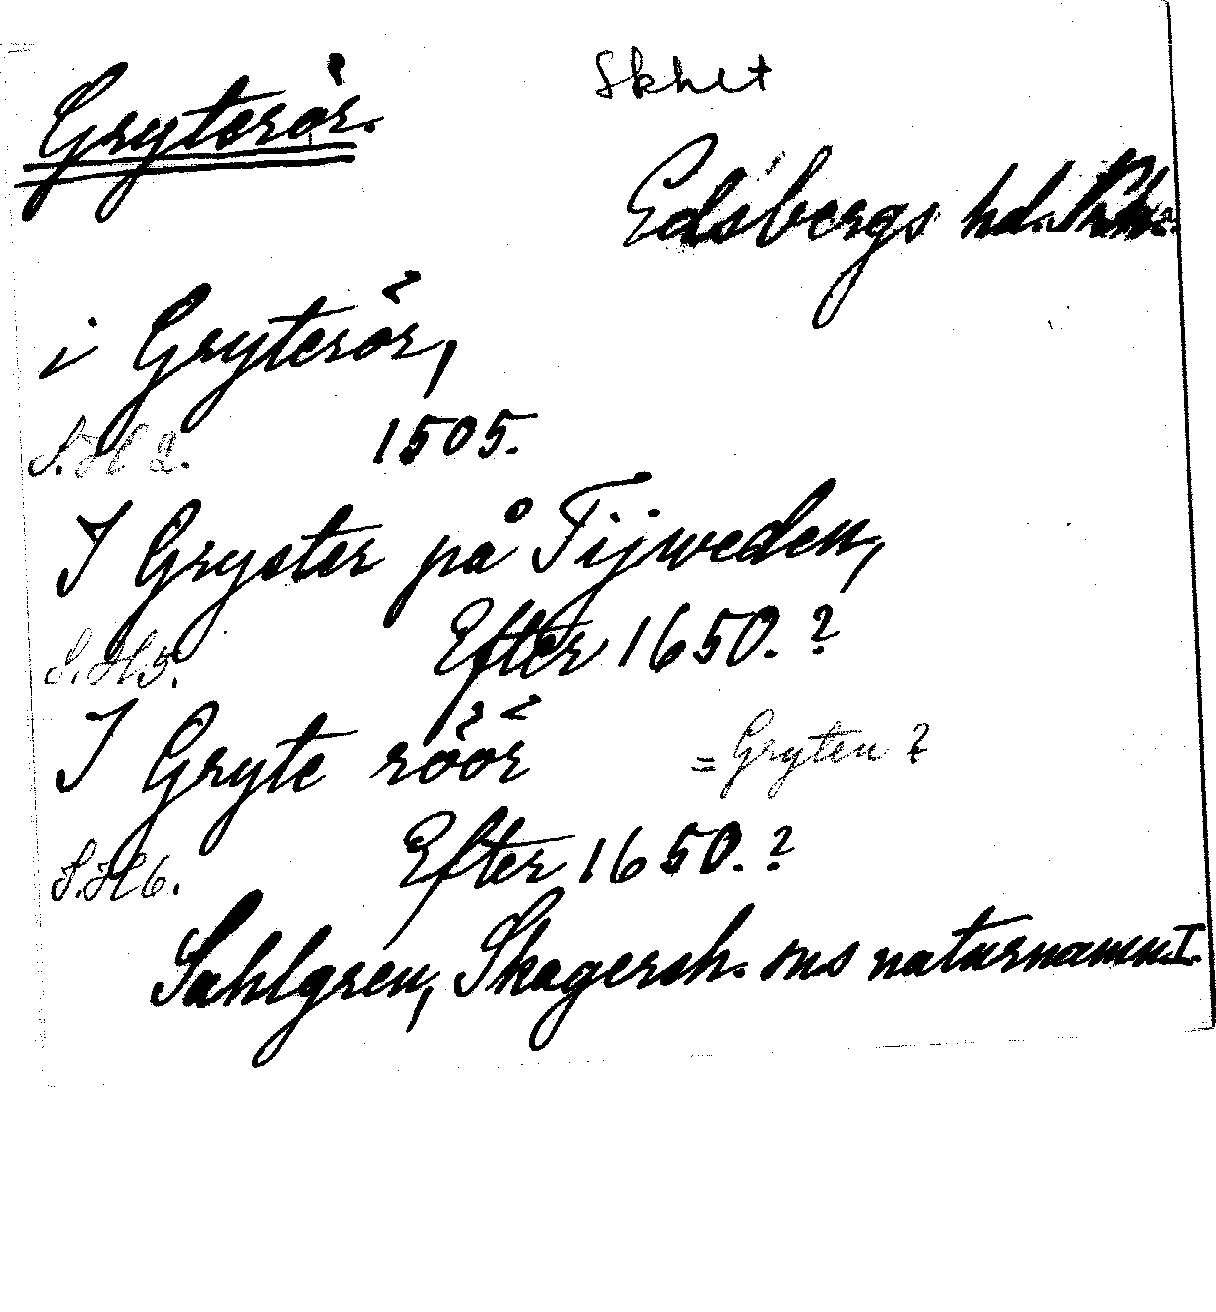 Gryterör.
Skhlt
Edsbergs hd.
i Gryterör,
S.H 2. 1505.
I Gryter på Tijweden,
S.H 5. Efter 1650.?
I Gryte röör =Gryten?
S.H 6. Efter 1650.?
Sahlgren, Skagersh. sns naturnamn I.